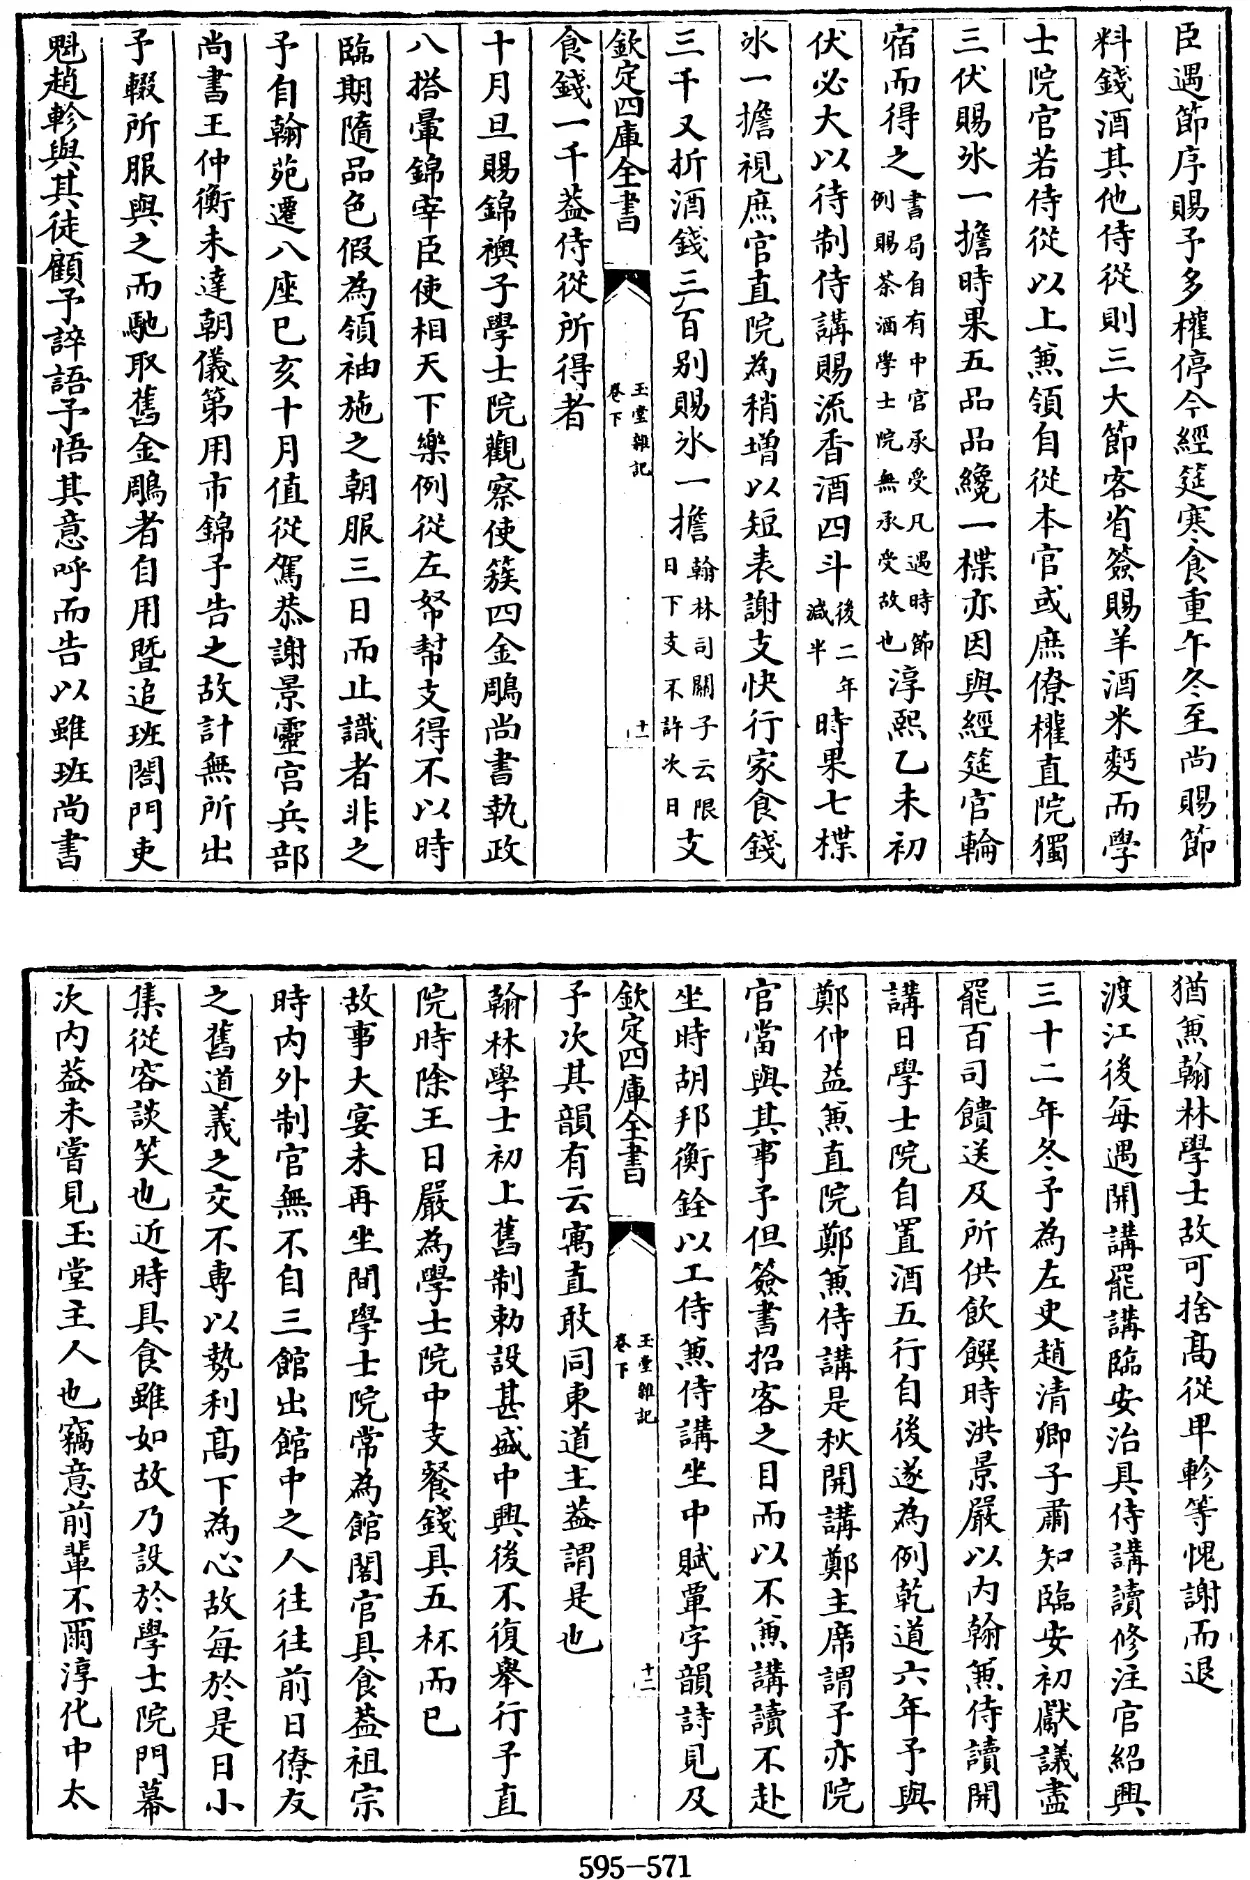 臣遇節序賜予多權停今經筵寒食重午冬至尚賜節
料錢酒其他侍從則三大節客省簽賜羊酒米麪而學
士院官若侍從以上兼領自從本官或庶僚權直院獨
三伏賜氷一擔時果五品品纔一楪亦因與經筵官輪
宿而得之書局自有中官承受凡遇時節例賜茶酒學士院無承受故也淳熙乙未初
伏必大以待制侍講賜流香酒四斗後二年減半時果七楪
氷一擔視庶官直院為稍增以短表謝支快行家食錢
三千又折酒錢三百别賜氷一擔翰林司關子云限日下支不許次日支
欽定四庫全書
玉堂雜記
卷下
十一
食錢一千葢侍從所得者
十月旦賜錦襖子學士院觀察使簇四金鵰尚書執政
八搭暈錦宰臣使相天下樂例從左帑幇支得不以時
臨期隨品色假為領袖施之朝服三日而止識者非之
予自翰苑遷八座已亥十月值從駕恭謝景靈宫兵部
尚書王仲衡未達朝儀第用市錦予告之故計無所出
予輟所服與之而馳取舊金鵰者自用暨追班閤門吏
魁趙軫與其徒顧予誶語予悟其意呼而告以雖班尚書
猶兼翰林學士故可捨髙從卑軫等愧謝而退
渡江後每遇開講罷講臨安治具侍講讀修注官紹興
三十二年冬予為左史趙清卿子肅知臨安初獻議盡
罷百司饋送及所供飲饌時洪景嚴以内翰兼侍讀開
講日學士院自置酒五行自後遂為例乾道六年予與
鄭仲益兼直院鄭兼侍講是秋開講鄭主席謂予亦院
官當與其事予但簽書招客之目而以不兼講讀不赴
坐時胡邦衡銓以工侍兼侍講坐中賦葷字韻詩見及
欽定四庫全書
玉堂雜記
卷下
十二
予次其韻有云寓直敢同東道主葢謂是也
翰林學士初上舊制勅設甚盛中興後不復舉行予直
院時除王日嚴為學士院中支餐錢具五杯而已
故事大宴未再坐間學士院常為館閣官具食葢祖宗
時内外制官無不自三館出館中之人往往前日僚友
之舊道義之交不專以勢利髙下為心故每於是日小
集從容談笑也近時具食雖如故乃設於學士院門幕
次内葢未嘗見玉堂主人也竊意前輩不爾淳化中太
595-571